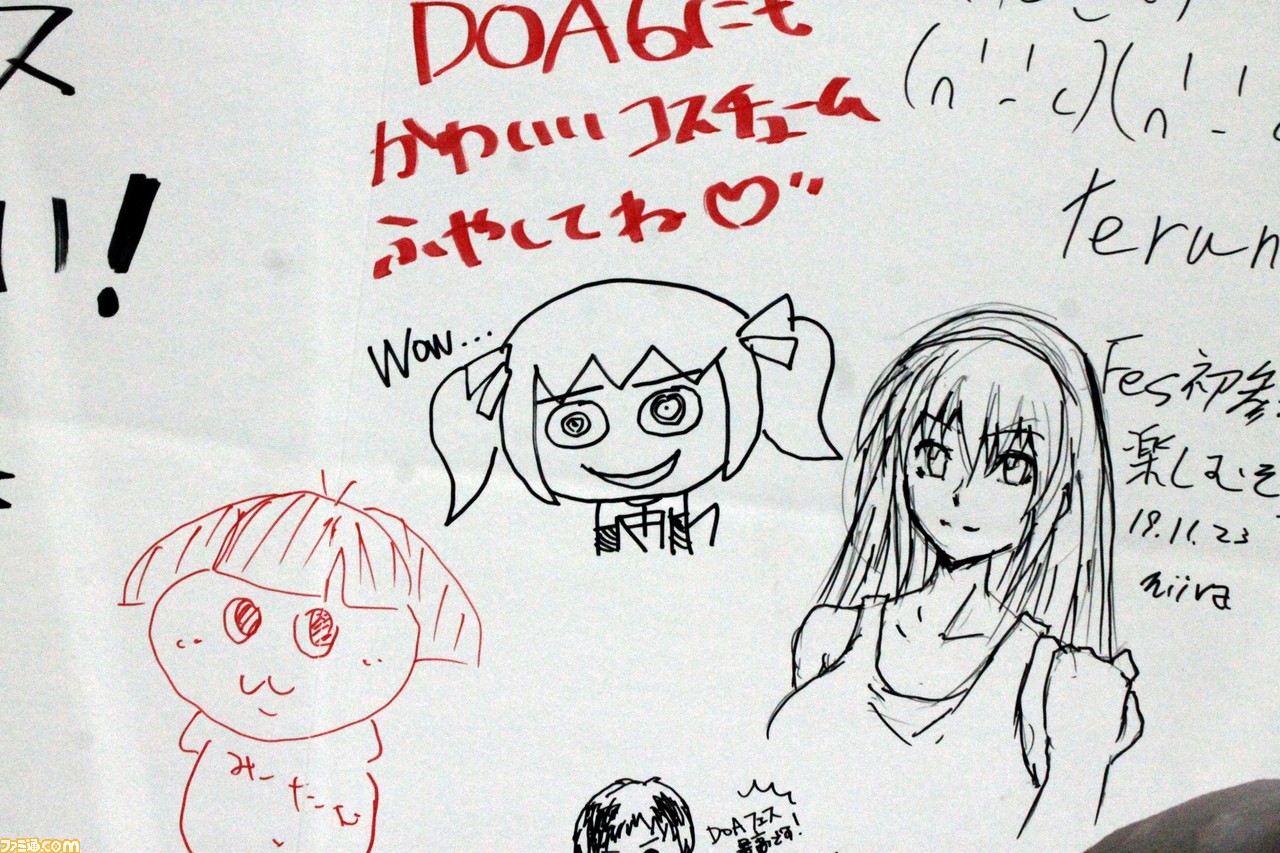 ス
い!
DOA6にも
かわいいコスチューム
ふやしてね♡"
(n'-'c)(n'-'
terun
Wow...
Fes初参
楽しむぞ
19.11.23
niira
みーたむ
DOAフェス
最高です!
ファミ通.com